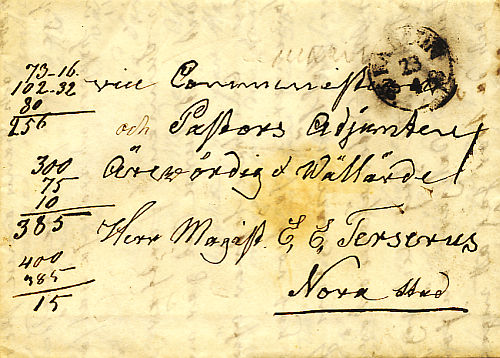 73-16.
102-32
80
256
300
75
10
385
400
385
15
23
4
vice Comministern
och Pastors Adjunten
Ärevördig & Wällärde
Herr Magist. E. E. Terserus
Nora Stad